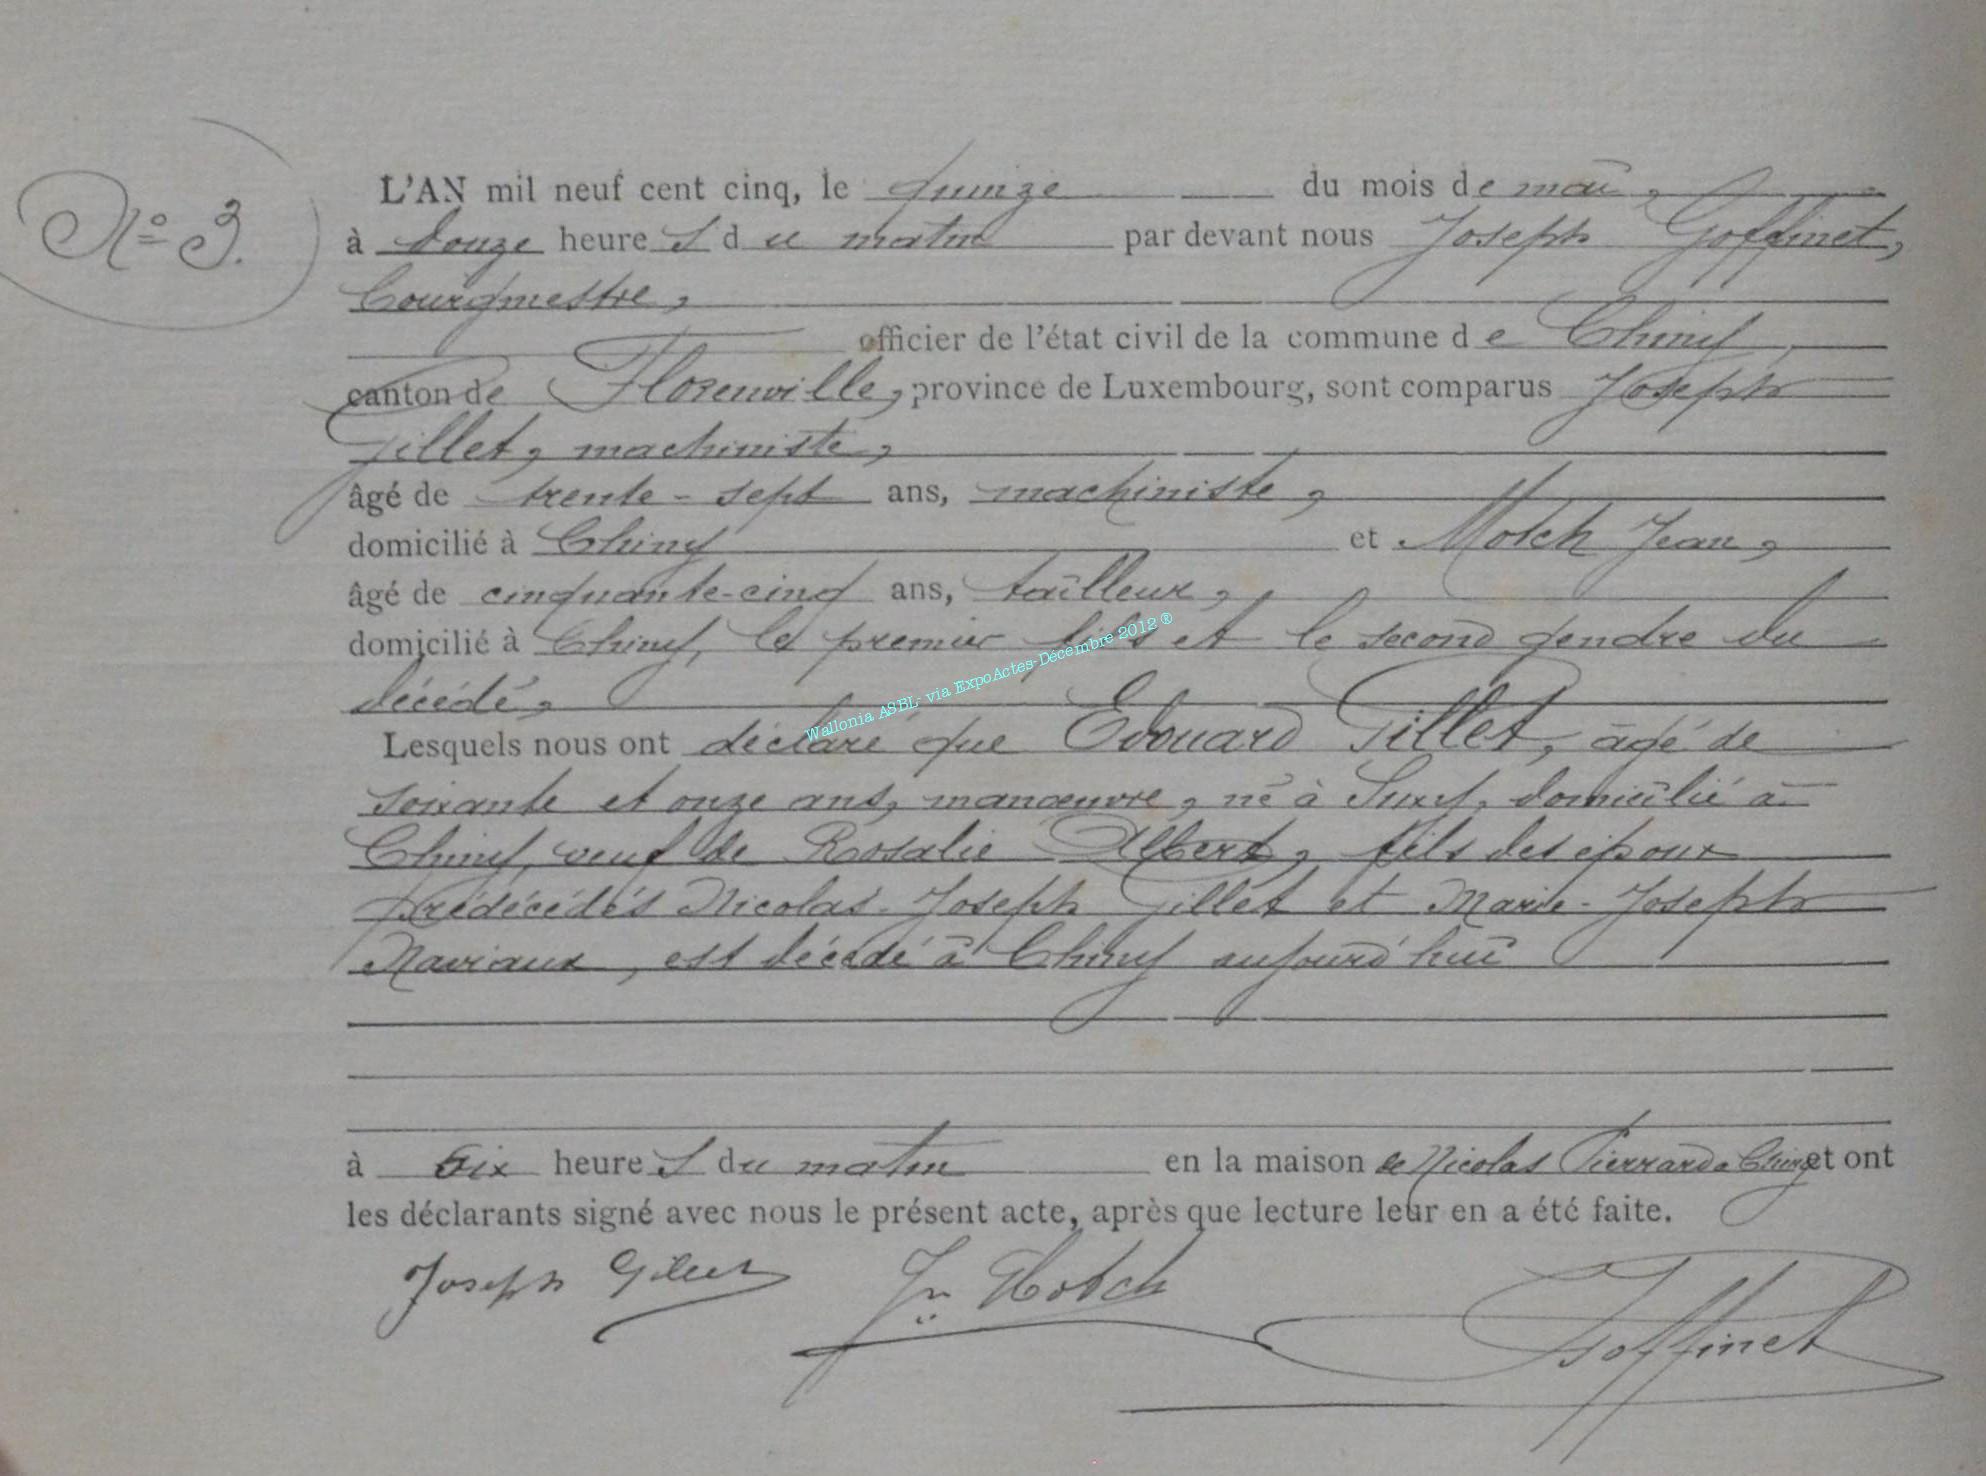 N° 3.
L'AN mil neuf cent cinq, le quinze du mois de mai,
à douze heures du matin par devant nous Joseph Goffinet,
bourgmestre,
officier de l'état civil de la commune de Chiny
canton de Florenville, province de Luxembourg, sont comparus Joseph
Gillet, machiniste,
âgé de trente-sept ans, machiniste,
domicilié à Chiny et Motch Jean,
âgé de cinquante-cinq ans, tailleur,
domicilié à Chiny, le premier fils et le second gendre du
décédé,
Lesquels nous ont déclaré que Edouard Gillet, âgé de
soixante et onze ans, manœuvre, né à Suxy, domicilié à
Chiny, veuf de Rosalie Albert, fils des époux
prédécédés Nicolas-Joseph Gillet et Marie-Joseph
Naviaux, est décédé à Chiny aujourd'hui
à six heures du matin en la maison de Nicolas Pierrard à Chiny et ont
les déclarants signé avec nous le présent acte, après que lecture leur en a été faite.
Joseph Gillet Jn Motch Goffinet
Wallonia ASBL- via ExpoActes-Décembre 2012 ®